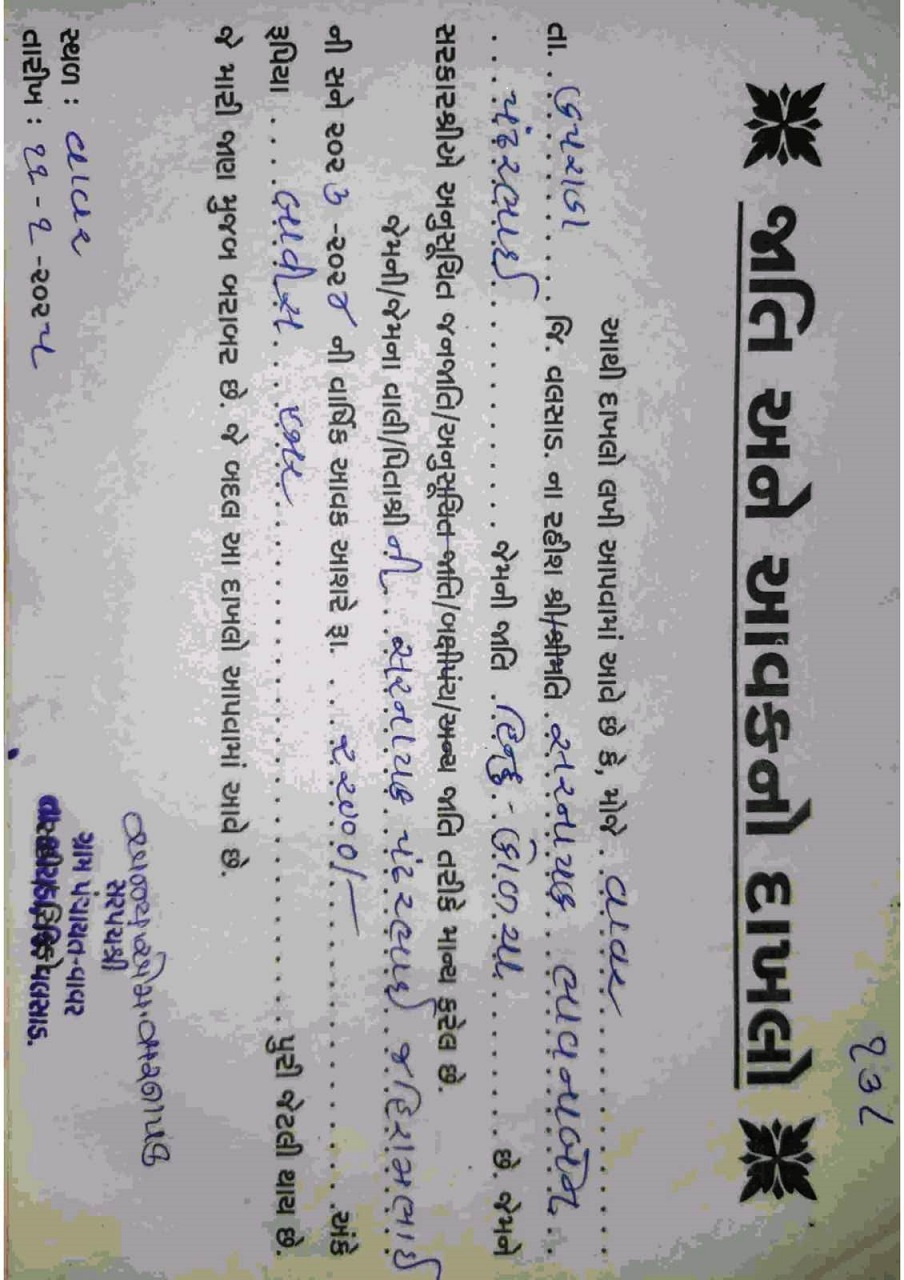 232
જાતિ અને આવકનો દાખલો
આથી દાખલો લખી આપવામાં આવે છે કે, મોજે વાવર
તા. કપરાડા જિ. વલસાડ. ના રહીશ શ્રી/શ્રીમતિ
ચંદરભાઈ જેમની જાતિ હિન્દુ - છે. જેમને
સરકારશ્રીએ અનુસૂચિત જનજાતિ/અનુસૂચિત જાતિ/બક્ષીપંચ/અન્ય જાતિ તરીકે માન્ય કરેલ છે.
જેમની/જેમના વાલી/પિતાશ્રી ની ચંદરભાઈ
ની સને ૨૦૨૩ -૨૦૨૪ ની વાર્ષિક આવક આશરે રૂા. ૨૨૦૦૦/- અંકે
રૂપિયા બાવીસ હજાર પુરી જેટલી થાય છે.
જે મારી જાણ મુજબ બરાબર છે. જે બદલ આ દાખલો આપવામાં આવે છે.
સ્થળ : વાવર
તારીખ : ૨૧ - ૨ -૨૦૨૫
સરપંચશ્રી
ગ્રામ પંચાયત-વાવર